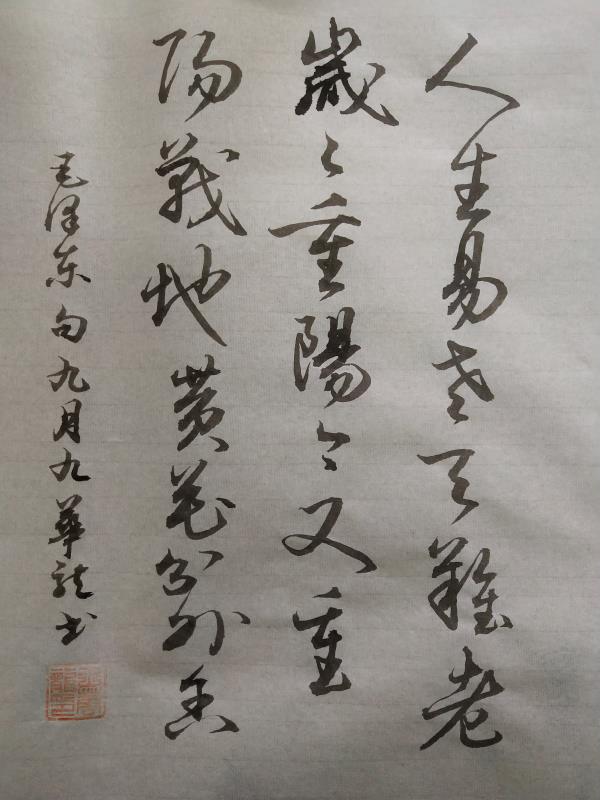 人生易老天難老
歲々重陽今又重
陽戰地黄花分外香
毛澤東句九月九華龍书